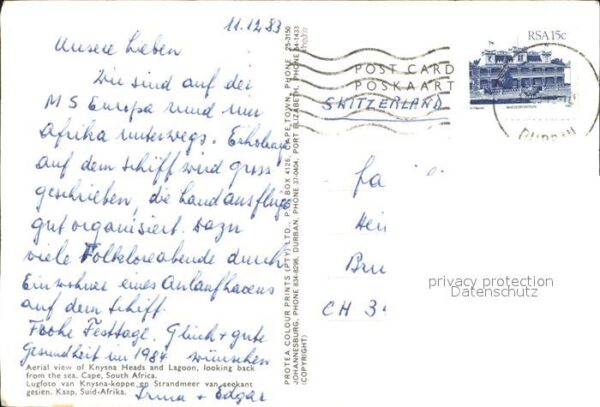 11.12.83
Unsere Lieben
Wir sind auf der
MS Europa rund um
Afrika unterwegs. Erholung
auf dem Schiff wird gross
geschrieben, die Landausflüge
gut organisiert. Dazu
viele Folkloreabende durch
Einwohner eines Anlaufhavens
auf dem Schiff.
Frohe Festtage. Glück + gute
Gesundheit im 1984 wünschen
Irma + Edgar
Aerial view of Knysna Heads and Lagoon, looking back
from the sea. Cape, South Africa.
Lugfoto van Knysna-koppe en Strandmeer van seekant
gesien. Kaap, Suid-Afrika.
PROTEA COLOUR PRINTS (PTY) LTD., P.O. BOX 4126, CAPE TOWN, PHONE 25-3150
JOHANNESBURG, PHONE 834-8206, DURBAN, PHONE 37-0404, PORT ELIZABETH, PHONE 34-1433
(COPYRIGHT)
POST CARD
POSKAART
SWITZERLAND
RSA 15c
DURBAN
Fa
Hei
Bru
CH 3
privacy protection
Datenschutz